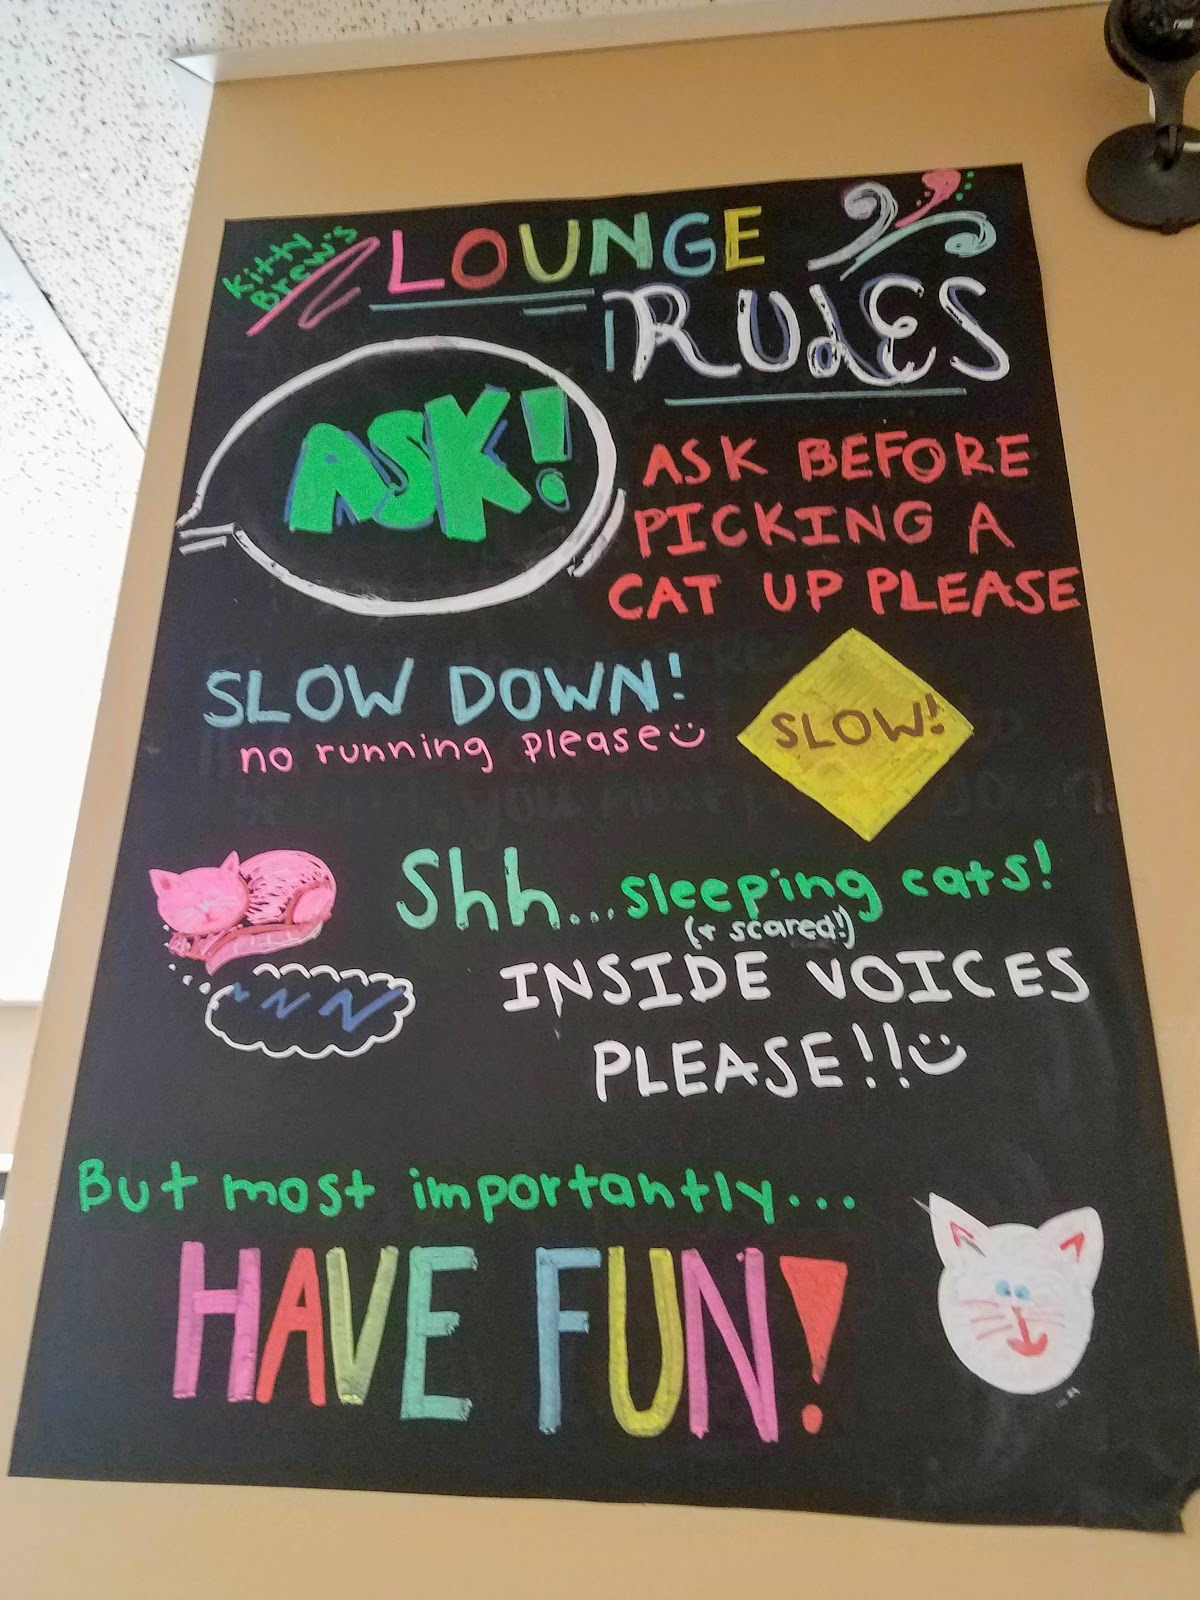 Kitty
Brew's
LOUNGE
RULES
ASK!
ASK BEFORE
PICKING A
CAT UP PLEASE
SLOW DOWN!
no running please
SLOW!
Shh...sleeping cats!
(+ scared!)
INSIDE VOICES
PLEASE!!
But most importantly...
HAVE FUN!